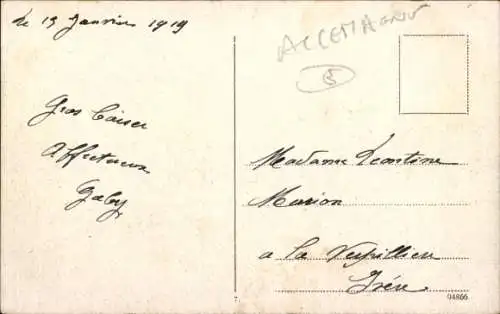 Le 13 Janvier 1919
ALLEMAGNE
5
Gros Baiser
Affectueux
Gaby
Madame Leontine
Marion
a la Verpilliere
Isère
7.
04866